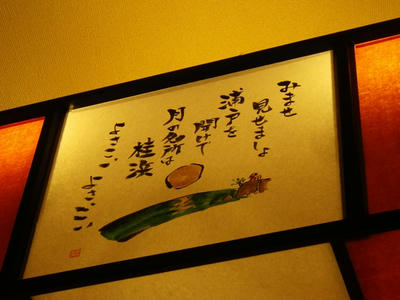 みませ
見せましょ
浦戸を
開けて
月の名所は
桂浜
よさこい よさこい